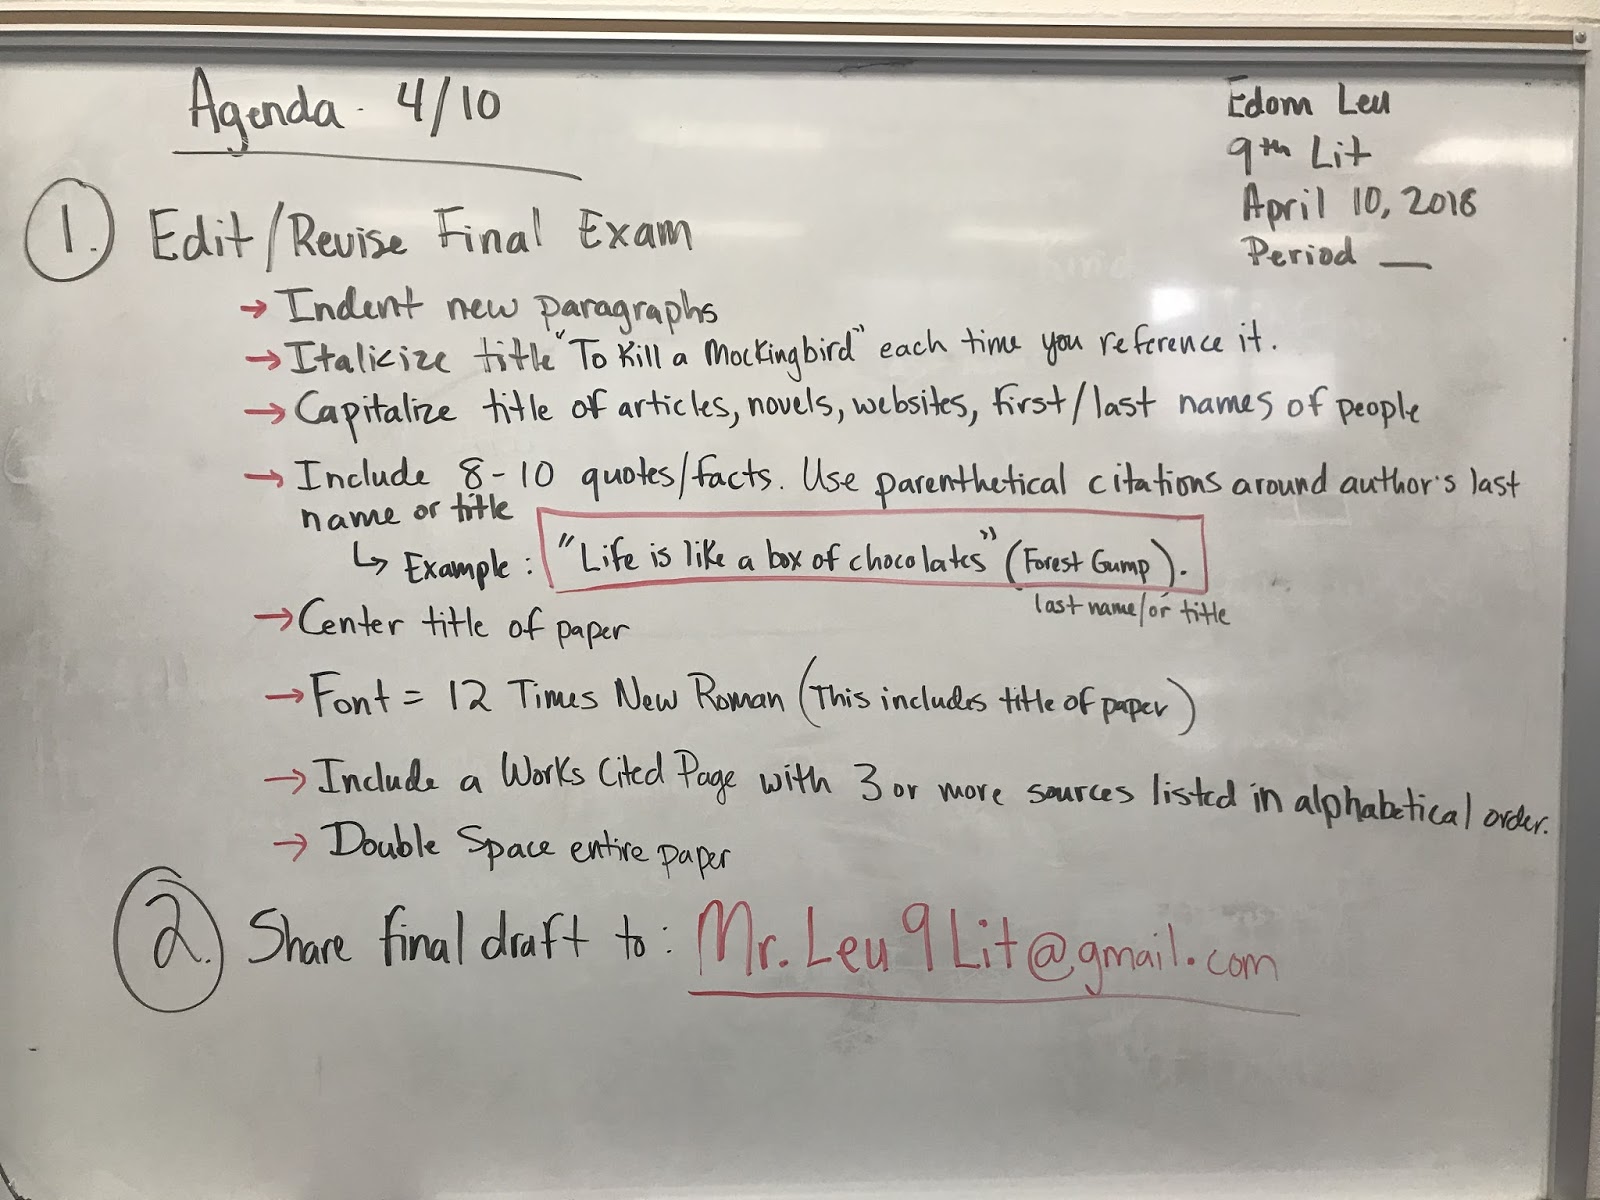 Agenda - 4/10
Edom Leu
9th Lit
April 10, 2018
Period __
1. Edit/Revise Final Exam
→ Indent new paragraphs
→ Italicize title "To Kill a Mockingbird" each time you reference it.
→ Capitalize title of articles, novels, websites, first/last names of people
→ Include 8-10 quotes/facts. Use parenthetical citations around author's last
name or title
↳ Example: "Life is like a box of chocolates" (Forest Gump).
last name/or title
→ Center title of paper
→ Font = 12 Times New Roman (This includes title of paper)
→ Include a Works Cited Page with 3 or more sources listed in alphabetical order.
→ Double Space entire paper
2. Share final draft to: Mr.Leu9Lit@gmail.com